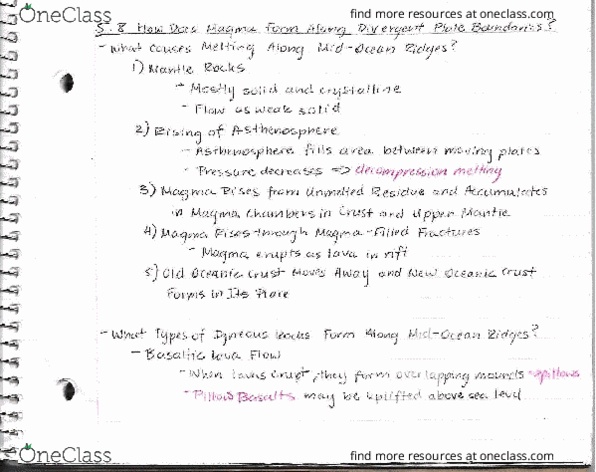 OneClass
find more resources at oneclass.com
5.8 How Does Magma Form Along Divergent Plate Boundaries?
- What Causes Melting Along Mid-Ocean Ridges?
1) Mantle Rocks
- Mostly solid and crystalline
- Flow as weak solid
2) Rising of Asthenosphere
- Asthenosphere fills area between moving plates
- Pressure decreases => decompression melting
3) Magma Rises from Unmelted Residue and Accumulates
in Magma Chambers in Crust and Upper Mantle
4) Magma Rises through Magma-Filled Fractures
- Magma erupts as lava in rift
5) Old Oceanic Crust Moves Away and New Oceanic Crust
Forms in Its Place
- What Types of Igneous Rocks Form Along Mid-Ocean Ridges?
- Basaltic lava Flow
- When lavas erupt, they form overlapping mounds → pillows
- Pillow Basalts may be uplifted above sea level
OneClass
find more resources at oneclass.com